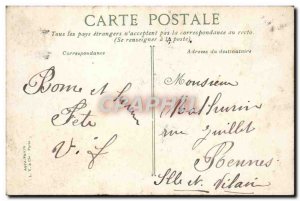 CARTE POSTALE
Tous les pays étrangers n'acceptent pas la correspondance au recto.
(Se renseigner à la poste).
Correspondance
Adresse du destinataire
Bonne et
Fête
V. J
Monsieur
Mathurin
rue Juillet
Rennes
Ille et Vilaine